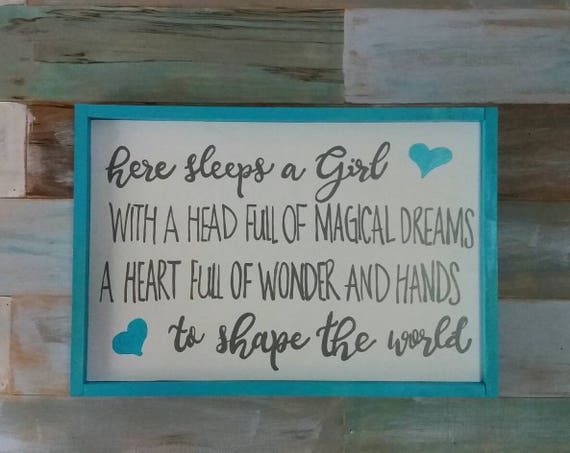 here sleeps a Girl
WITH A HEAD FULL OF MAGICAL DREAMS
A HEART FULL OF WONDER AND HANDS
to shape the world